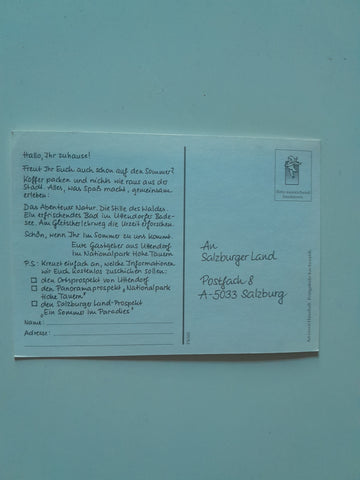 Hallo, Ihr zuhause!
Freut Ihr Euch auch schon auf den Sommer?
Koffer packen und nichts wie raus aus der
Stadt. Alles, was Spaß macht, gemeinsam
erleben:
Das Abenteuer Natur. Die Stille des Waldes.
Ein erfrischendes Bad im Uttendorfer Bade-
see. Am Gletscherlehrweg die Urzeit erforschen.
Schön, wenn Ihr im Sommer zu uns kommt.
Eure Gastgeber aus Uttendorf
im Nationalpark Hohe Tauern
P.S.: Kreuzt einfach an, welche Informationen
wir Euch kostenlos zuschicken sollen:
☐ den Ortsprospekt von Uttendorf
☐ den Panoramaprospekt „Nationalpark
Hohe Tauern"
☐ den Salzburger Land-Prospekt
„Ein Sommer im Paradies"
Name:
Adresse:
Bitte ausreichend
frankieren
An
Salzburger Land
Postfach 8
A-5033 Salzburg